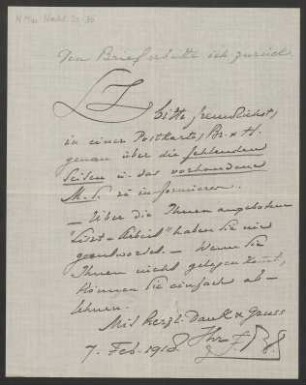 Den Brief erbitte ich zurück
Bitte freundlichst,
in einer Postkarte, Br. & H.
genau über die fehlenden
Seiten u. das vorhandene
M.S. zu informieren.
– Über die Ihnen angebotene
"Liszt-Arbeit" haben Sie nie
geantwortet. – Wenn Sie
Ihnen nicht gelegen kommt,
können Sie einfach ab-
lehnen.
Mit herzl. Dank u. Gruss
7. Feb. 1918 Ihr